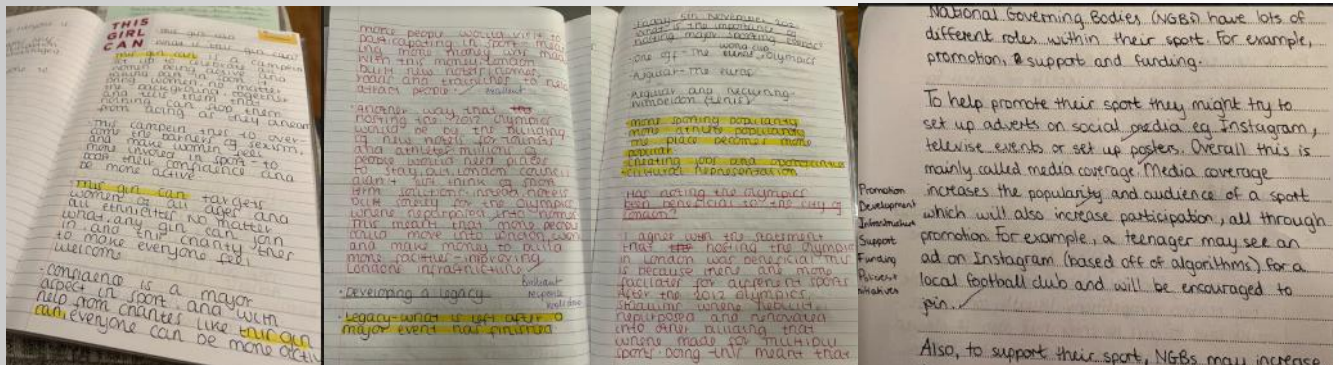 THIS
GIRL
CAN
This girl can
what is this girl can?
This girl can is a campein
set up to celebrate all
women being active and
taking part in sport
women, no matter
the background,
and tells them that
nothing can stop them
from doing as they dream
This campein tries to over-
come the barriers of sexism,
and make women feel
more involved in sport to
boost their confidence and
be more active
This girl can targets
women of all ages and
all ethnicities No matter
what, any girl can join
in and this charity tries
to make everyone feel
welcome
· confidence is a major
aspect in sport and with
help from charites like this girl
can, everyone can be more activ
more people would visit to
participating in sport, mean
ing more money was made
With this money, London
built new hotels, homes,
roads and to help
attract people.
excellent
· Another way that
hosting the 2012 Olympics
would be by the building
of new hotels for tourists
and athletes. millions of
people would need places
to stay, but London council
didn't just think of short
term solutions, instead hotels
built solely for the Olympics
where repurposed into homes
This meant that more people
could move into London, work
and make money to build
more facilities - improving
Londons infrastructure.
brilliant
response
· Developing a legacy
· Legacy - what is left after a
major event has finished
Friday 5th November 2021
What is the importance of
hosting major sporting events?
world cup
· one off - The Olympics
· Regular - The Euros
· Regular and recurring-
wimbeldon (tennis)
more sporting popularity
more athlete popularity
the place becomes more
popular
creating jobs and oppertunities
cultural representation
Has hosting the Olympics
been beneficial to the city of
London?
I agree with the statement
that hosting the Olympics
in London was beneficial. This
is because there are more
facilities for different sports
After the 2012 Olympics,
stadiums where rebuilt,
repurposed and renovated
into other building that
where made for multiple
sports. Doing this meant that
National Governing Bodies (NGBs) have lots of
different roles within their sport. For example,
promotion, support and funding.
To help promote their sport they might try to
set up adverts on social media eg. Instagram,
televise events or set up posters. Overall this is
mainly called media coverage. Media coverage
increases the popularity and audience of a sport
which will also increase participation, all through
promotion. For example, a teenager may see an
ad on Instagram (based off of algorithms) for a
local football club and will be encouraged to
join.
Promotion
Development
Infrastructure
Support
Funding
Policies +
initiatives
Also, to support their sport, NGBs may increase